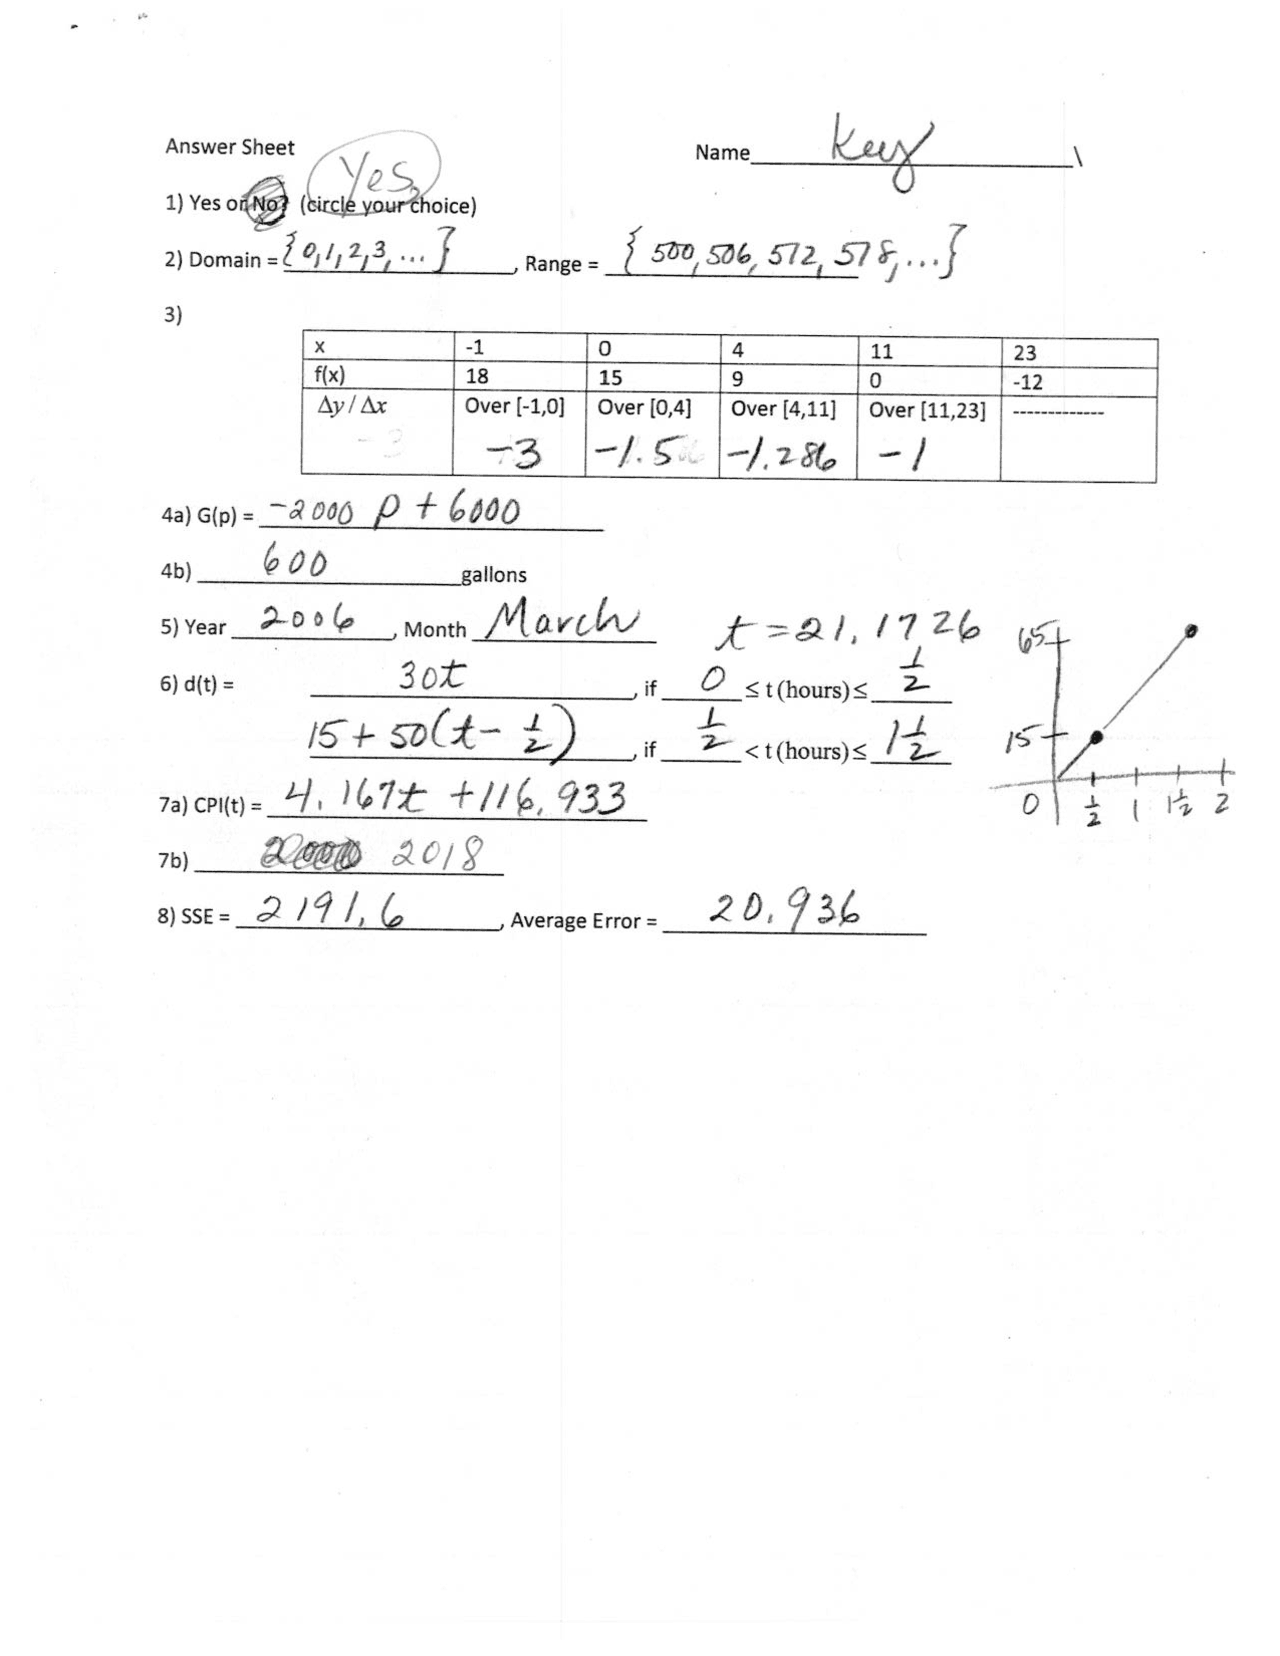 Answer Sheet
Name Key
Yes,
1) Yes or No? (circle your choice)
2) Domain = {0,1,2,3, ...}, Range = {500, 506, 572, 578, ...}
3)
x -1 0 4 11 23
f(x) 18 15 9 0 -12
Δy / Δx Over [-1,0] Over [0,4] Over [4,11] Over [11,23] -------------
-3 -3 -1.5 -1.286 -1
4a) G(p) = -2000 p + 6000
4b) 600 gallons
5) Year 2006, Month March t = 21.1726
6) d(t) = 30t, if 0 ≤ t (hours) ≤ 1/2
15 + 50(t - 1/2), if 1/2 < t (hours) ≤ 1 1/2
65
15
0 1/2 1 1 1/2 2
7a) CPI(t) = 4.167t + 116.933
7b) 2018
8) SSE = 2191.6, Average Error = 20.936